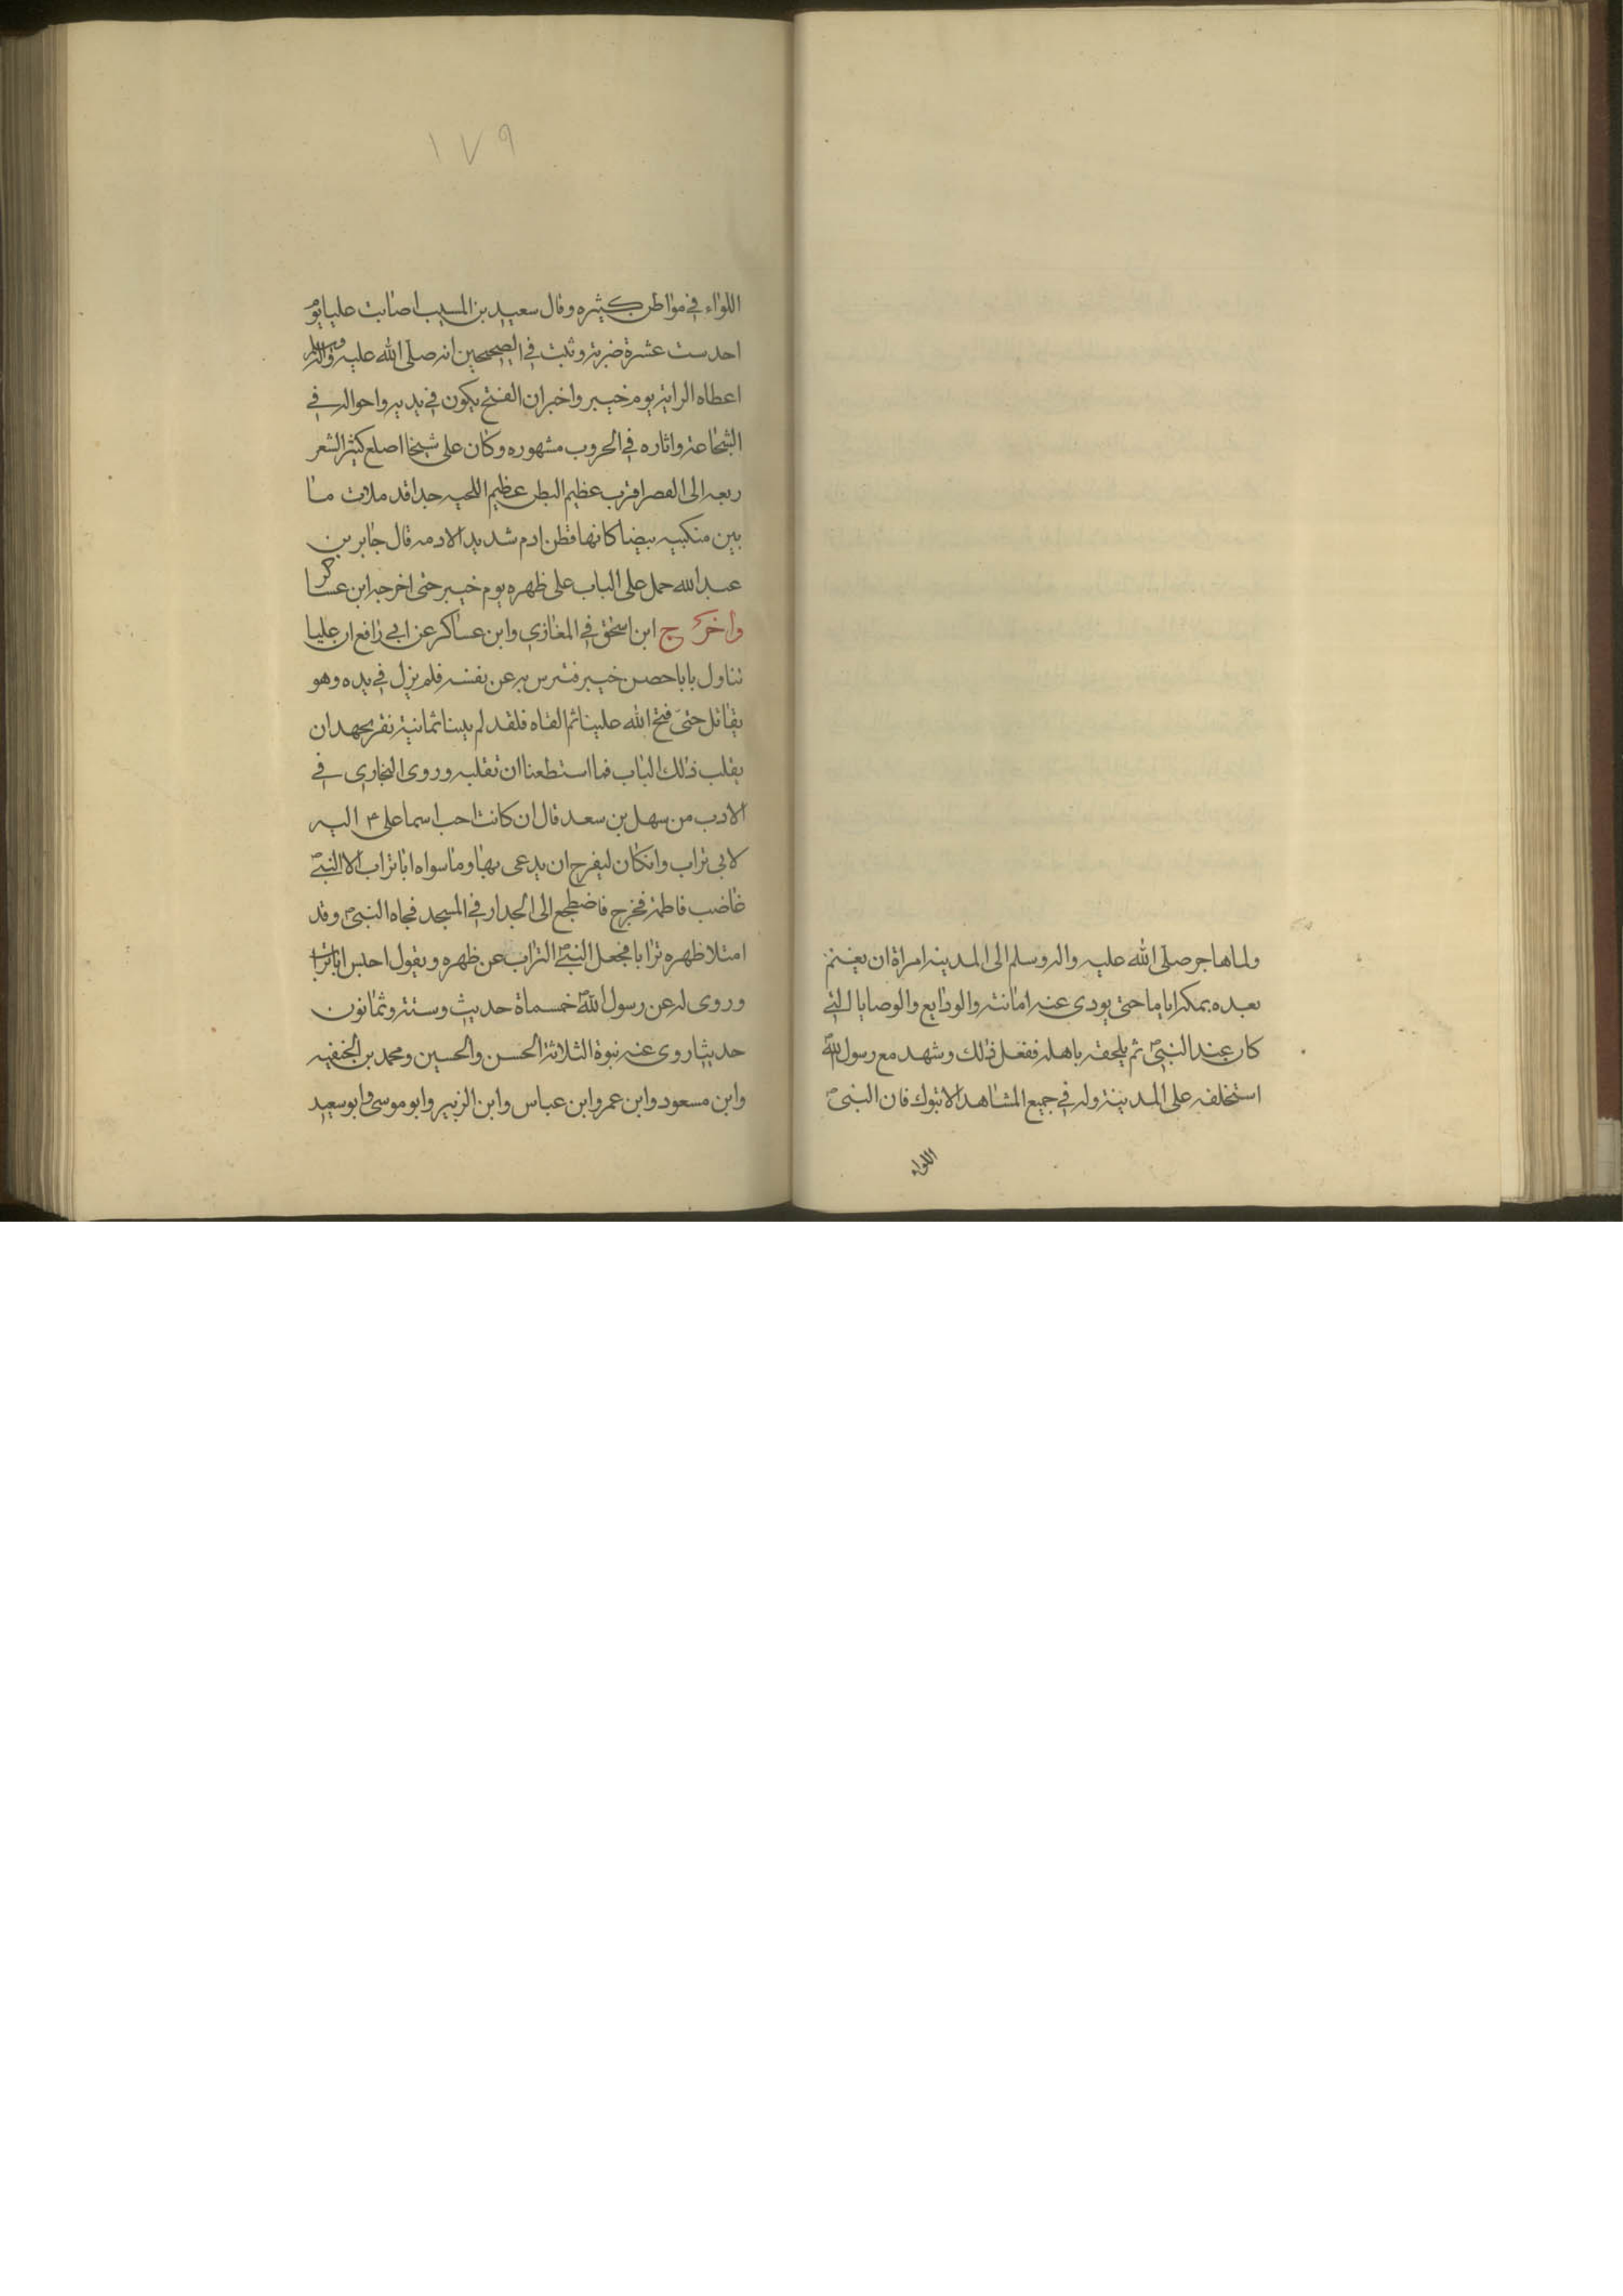 ولما هاجر صلى الله عليه واله وسلم الى المدينه امراة ان يغنم
بعده بمكه اياما حتى يودى عنه امانته والودايع والوصايا التي
كان عند النبي ص ثم يلحقه باهله ففعل ذلك وشهد مع رسول الله ص
استخلفه على المدينة وله في جميع المشاهد الا تبوك فان النبى ص
اللواء
١٧٩
اللواء في مواطن كثيره وقال سعيد بن المسيب اصابت عليا يوم
احد ست عشرة ضربة وثبت في الصحيحين انه صلى الله عليه واله وسلم
اعطاه الراية يوم خيبر واخبر ان الفتح يكون في يديه واحواله في
الشجاعة واثاره في الحروب مشهوره وكان على شيخا اصلع كثير الشعر
ربعه الى القصر اقرب عظيم البطن عظيم اللحيه جدا قد ملات ما
بين منكبيه بيضا كانها قطن ادم شديد الادمه قال جابر بن
عبد الله حمل على الباب على ظهره يوم خيبر حتى اخرجه ابن عساكر
واخرج ابن اسحق في المغازي وابن عساكر عن ابي رافع ان عليا
تناول بابا حصن خيبر فترس به عن نفسه فلم يزل في يده وهو
يقاتل حتى فتح الله علينا ثم القاه فلقد لم يبنا ثمانية نفر بجهد ان
يقلب ذلك الباب فما استطعنا ان نقلبه وروى البخاري في
الادب من سهل بن سعد قال ان كانت احب اسما على ٣ اليه
لابى تراب وانكان ليفرح ان يدعى بها وما سواه ابا تراب الا النبي ص
غاضب فاطمة فخرج فاضطجع الى الجدار في المسجد فجاه النبى ص وقد
امتلا ظهره ترابا فجعل النبي ص التراب عن ظهره ويقول احلس ابا تراب
وروى له عن رسول الله ص خمسماة حديث وستة وثمانون
حديثا روى عنه نبوة الثلاثة الحسن والحسين ومحمد بن الحنفيه
وابن مسعود وابن عمر وابن عباس وابن الزبير وابو موسى وابو سعيد